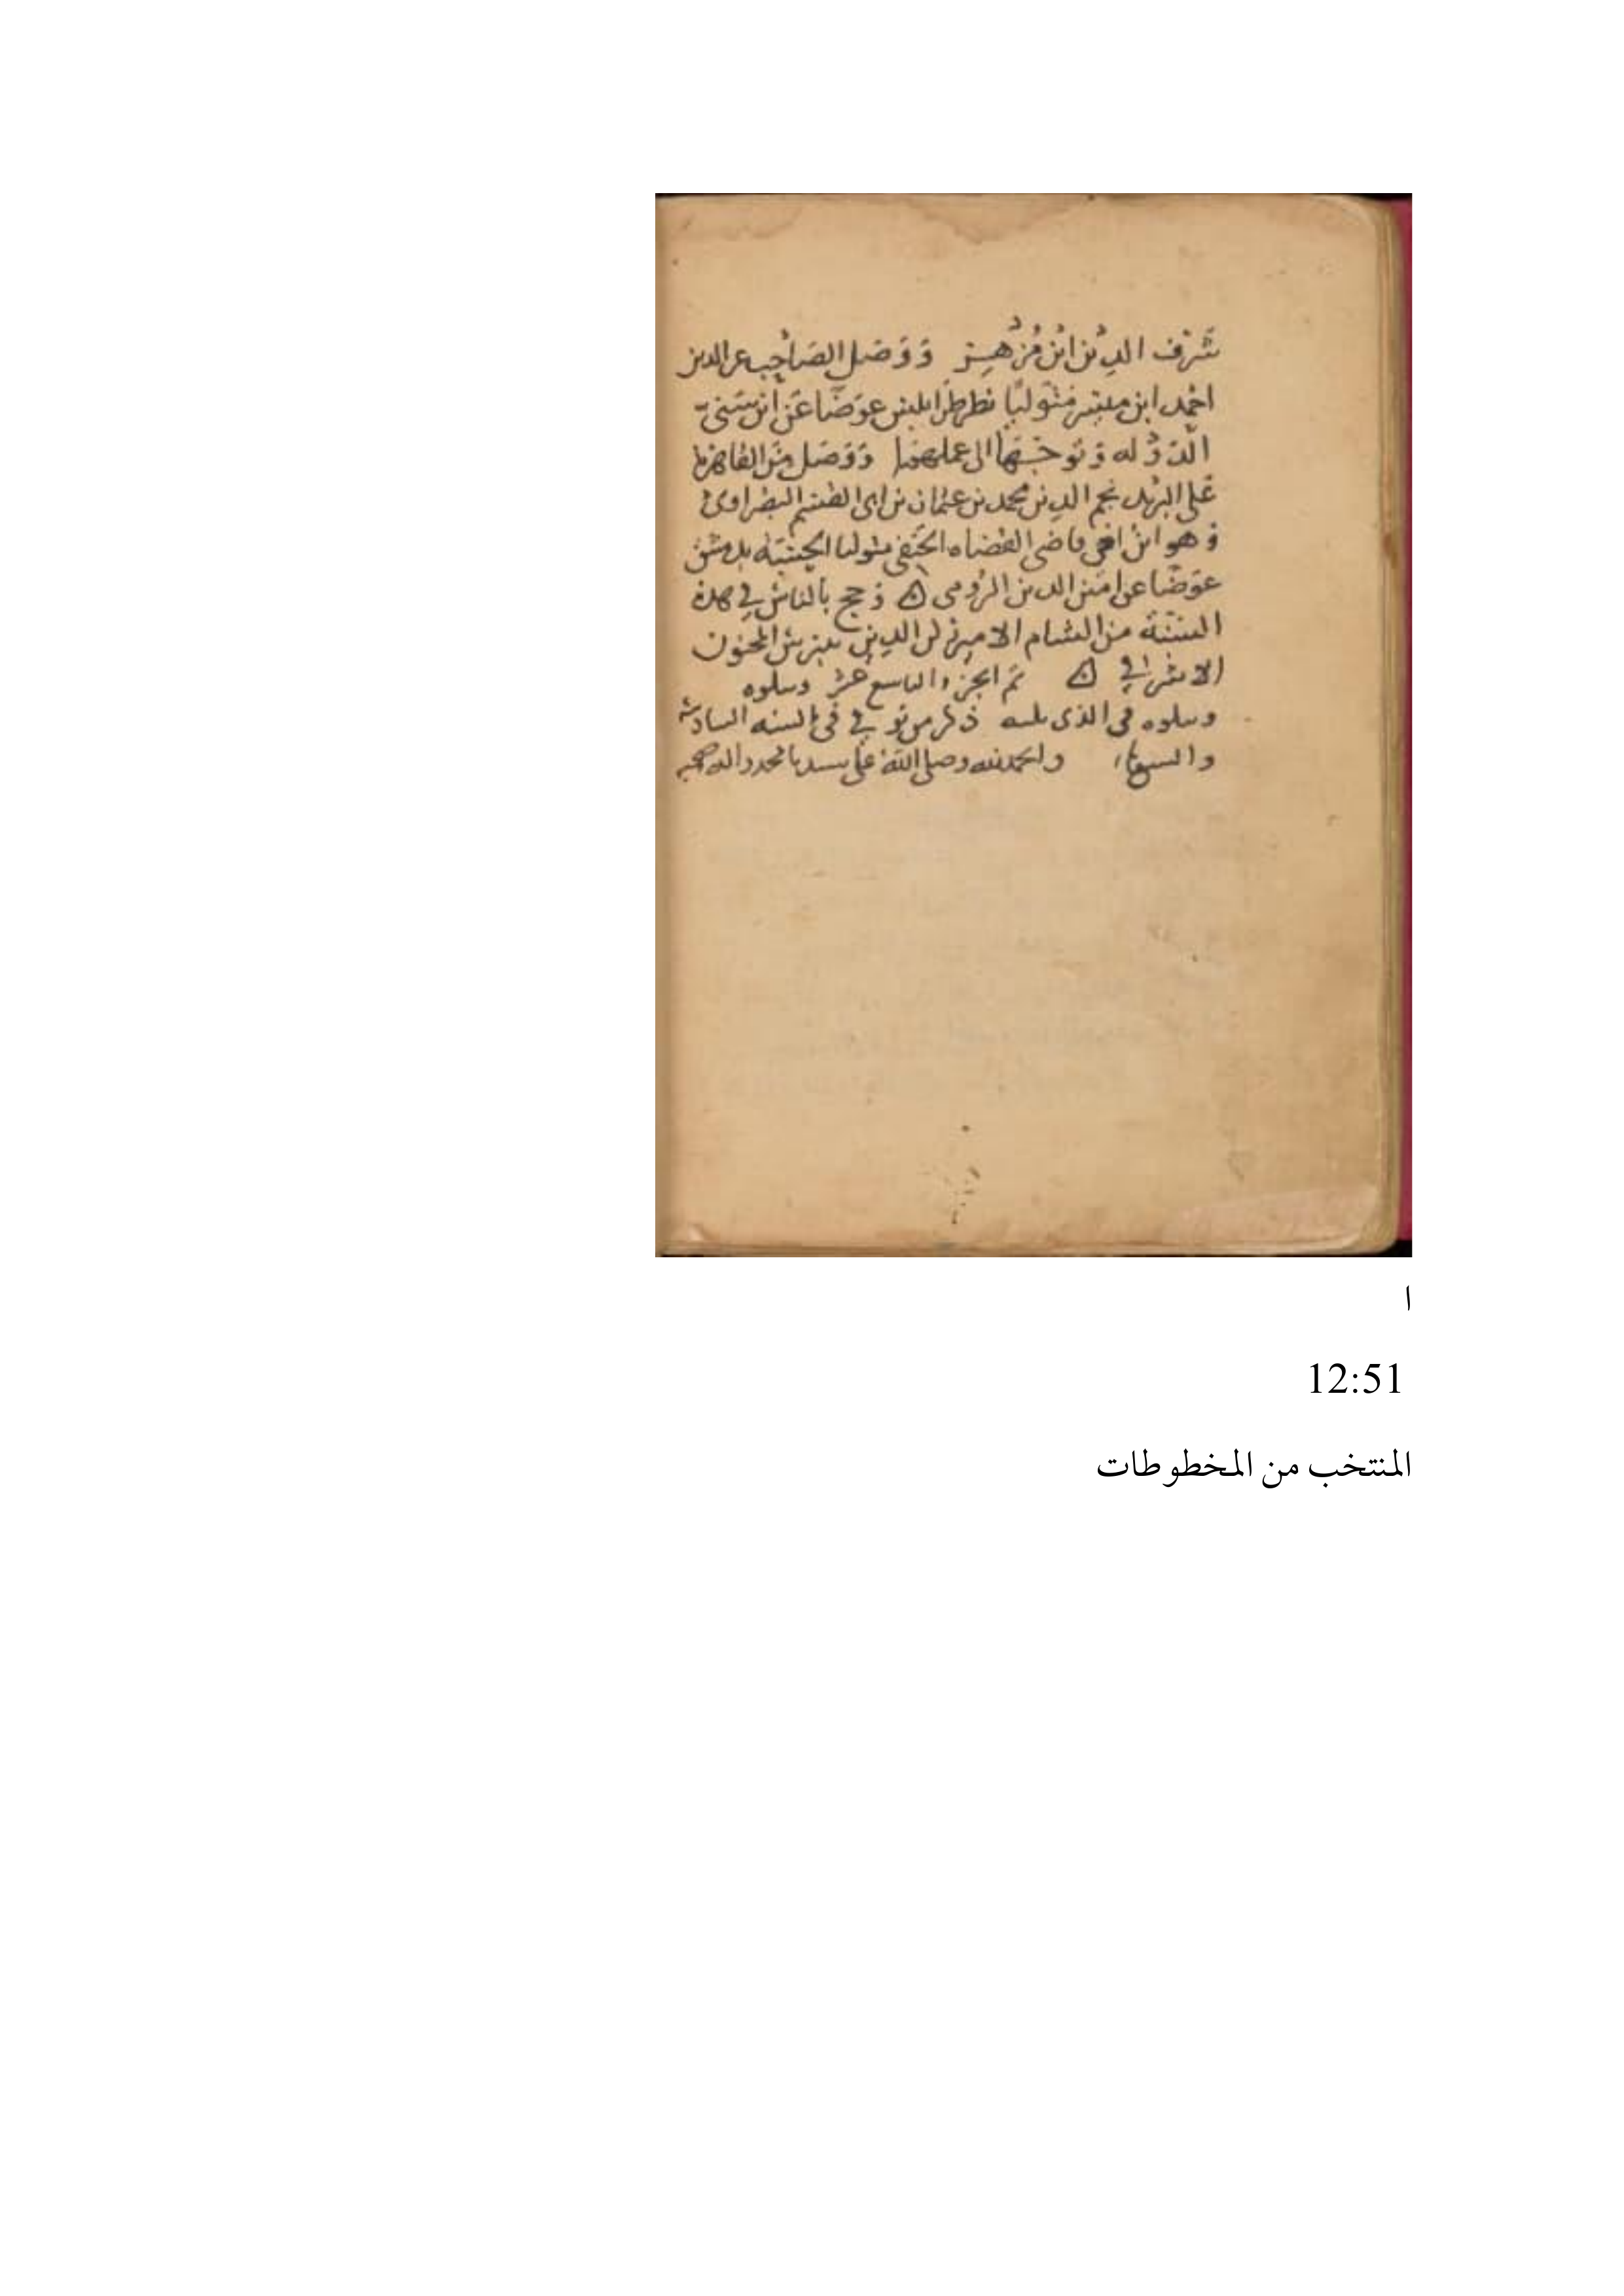 شرف الدين ابن مزهر ووصل الصاحب عز الدين
احمد ابن ميسر متوليا نظر طرابلس عوضا عن ابن سنى
الدوله وتوجها الى عملهما ووصل من القاهره
على البريد نجم الدين محمد بن عثمان بن ابى القسم البصراوى
وهو ابن اخى قاضى القضاه الحنفى متوليا الحسبه بدمشق
عوضا عن امين الدين الرومى وحج بالناس في هذه
السنة من الشام الامير ركن الدين بيبرس المجنون
الاشرفي تم الجزء التاسع عشر وسلوه
وسلوه فى الذى يليه ذكر من توفي فى السنه السادسة
والسبعمائة والحمد لله وصلى الله على سيدنا محمد واله وصحبه
ا
12:51
المنتخب من المخطوطات